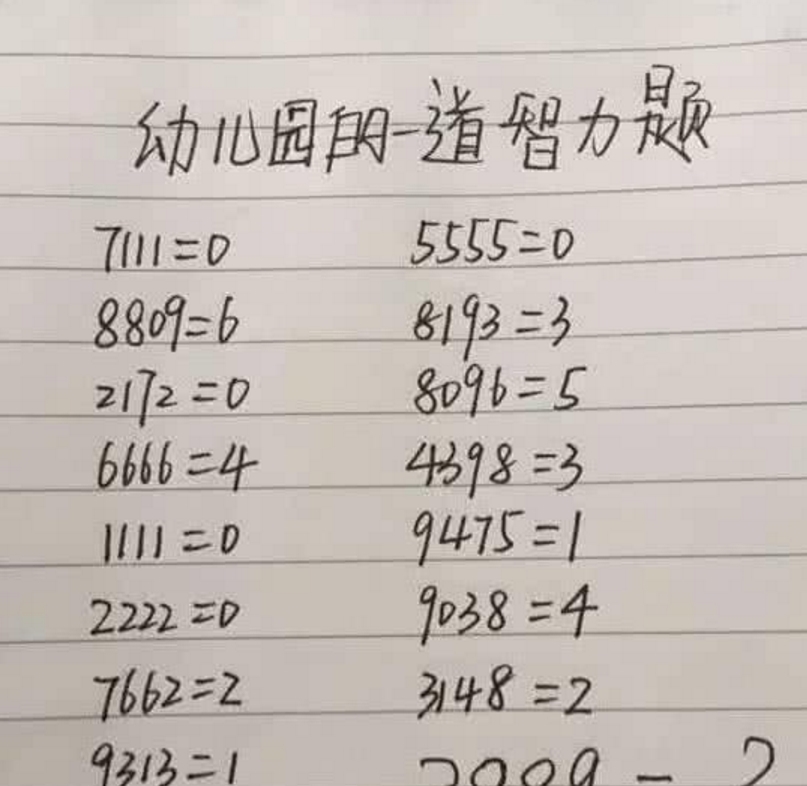 幼儿园的一道智力题
7111=0 5555=0
8809=6 8193=3
2172=0 8096=5
6666=4 4398=3
1111=0 9475=1
2222=0 9038=4
7662=2 3148=2
9313=1